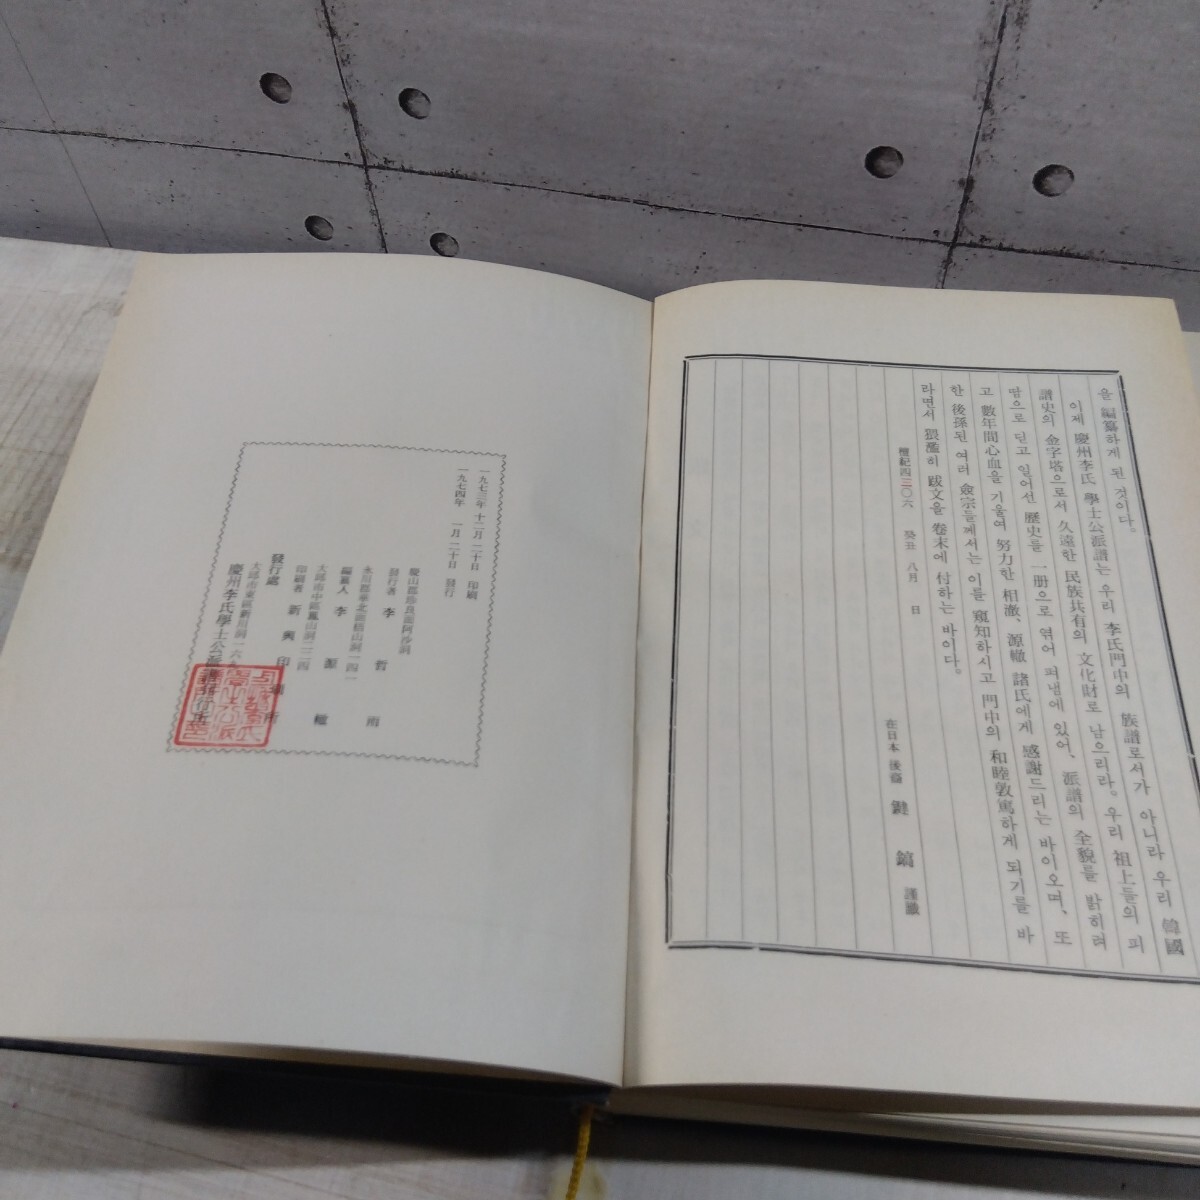 을 編纂하게 된 것이다.
이제 慶州李氏 學士公派譜는 우리 李氏門中의 族譜로서가 아니라 우리 韓國
譜史의 金字塔으로서 久遠한 民族共有의 文化財로 남으리라. 우리 祖上들의 피
땀으로 딛고 일어선 歷史를 一册으로 엮어 펴냄에 있어, 派譜의 全貌를 밝히려
고 數年間心血을 기울여 努力한 相澈、源轍 諸氏에게 感謝드리는 바이오며、또
한 後孫된 여러 僉宗들께서는 이를 窺知하시고 門中의 和睦敦篤하게 되기를 바
라면서 猥濫히 跋文을 卷末에 付하는 바이다.
檀紀四三〇六 癸丑 八月 日
在日本 後裔 鍾 鎬 謹識
一九七三年 十二月 二十日 印刷
一九七四年 一月 二十日 發行
慶山郡珍良面阿沙洞
發行者 李 哲 雨
永川郡華北面梧山洞一四一
編纂人 李 源 轍
大邱市中區鳳山洞二二四
印刷者 新 興 印 刷 所
發行處
大邱市東區新川洞一六
慶州李氏學士公派譜發行所